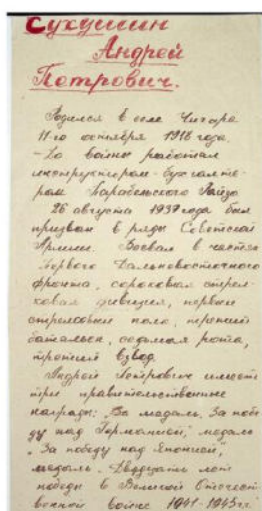 Сухушин
Андрей
Петрович.
Родился в селе Чигара
11-го октября 1918 года.
- До войны работал
инструктором-бухгалте-
ром Парабельского
26 августа 1937 года был
призван в ряды Советской
Армии. Воевал в частях
Первого Дальневосточного
фронта, сороковая стрел-
ковая дивизия, первый
стрелковый полк, первый
батальон, седьмая рота,
третий взвод.
Андрей Петрович имеет
три правительственные
награды: медаль „За побе
ду над Германией", медаль
„За победу над Японией",
медаль „Двадцать лет
победы в Великой Отечест
венной войне 1941-1945гг.